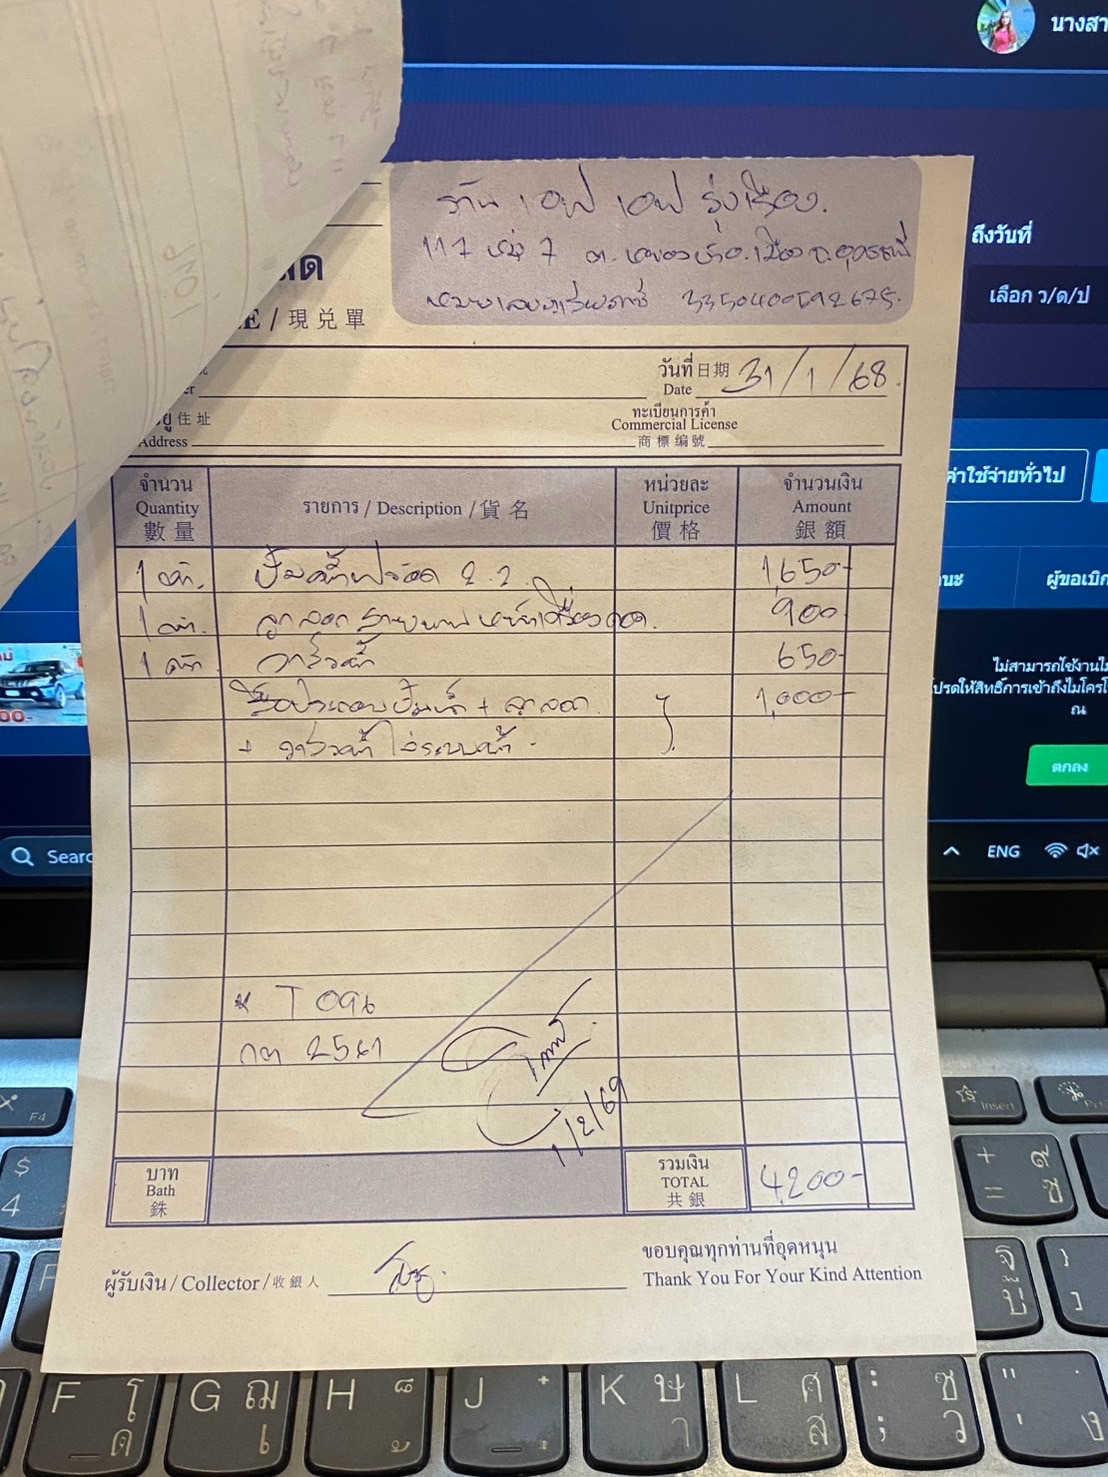 นางสา
ถึงวันที่
เลือก ว/ด/ป
ร้าน เอฟ เอฟ รุ่งเรือง.
117 หมู่ 7 ต. อ.เมือง จ.อุดรธานี
3350400592675.
สด
E / 現兌單
วันที่ 日期 Date 31/1/68.
ทะเบียนการค้า
Commercial License
商標編號
住址
Address
จำนวน Quantity 數量
รายการ / Description / 貨名
หน่วยละ Unitprice 價格
จำนวนเงิน Amount 銀額
1 ปั้มน้ำฟอร์ด 2.2 1,650-
1 ลูกลอก สายพาน หน้าเครื่อง 900
1 วาล์วน้ำ 650-
ประกอบปั้มน้ำ + ลูกลอก 1,000-
+ วาล์วน้ำ ไล่ระบบน้ำ -
T 096
กต 2541
1/2/69
บาท Bath 銖
รวมเงิน TOTAL 共銀 4,200-
ผู้รับเงิน / Collector / 收銀人
ขอบคุณทุกท่านที่อุดหนุน
Thank You For Your Kind Attention
ค่าใช้จ่ายทั่วไป
นะ
ผู้ขอเบิก
ไม่สามารถใช้งานไม
โปรดให้สิทธิ์การเข้าถึงไมโครโ
ณ
ตกลง
Searc
ENG
F4
Insert
$ 4
+ =
F โ ด
G ฌ เ
H
J
K ษ า
L ศ ส
: ; ซ ว
" ' ง
ฐ บ